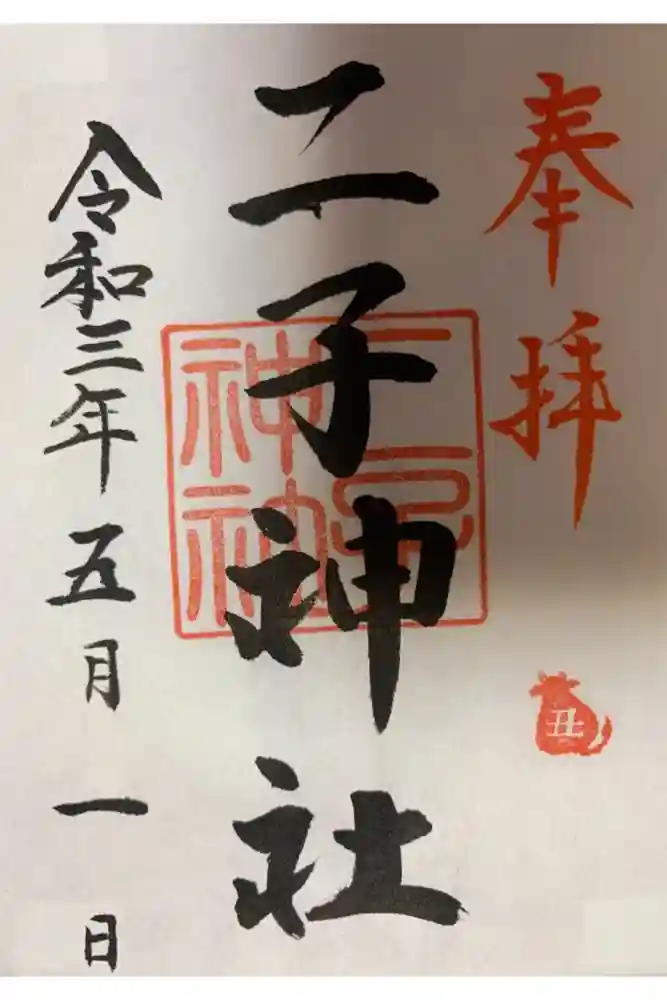 奉拝
丑
二子神社
二子
神社
令和三年五月一日